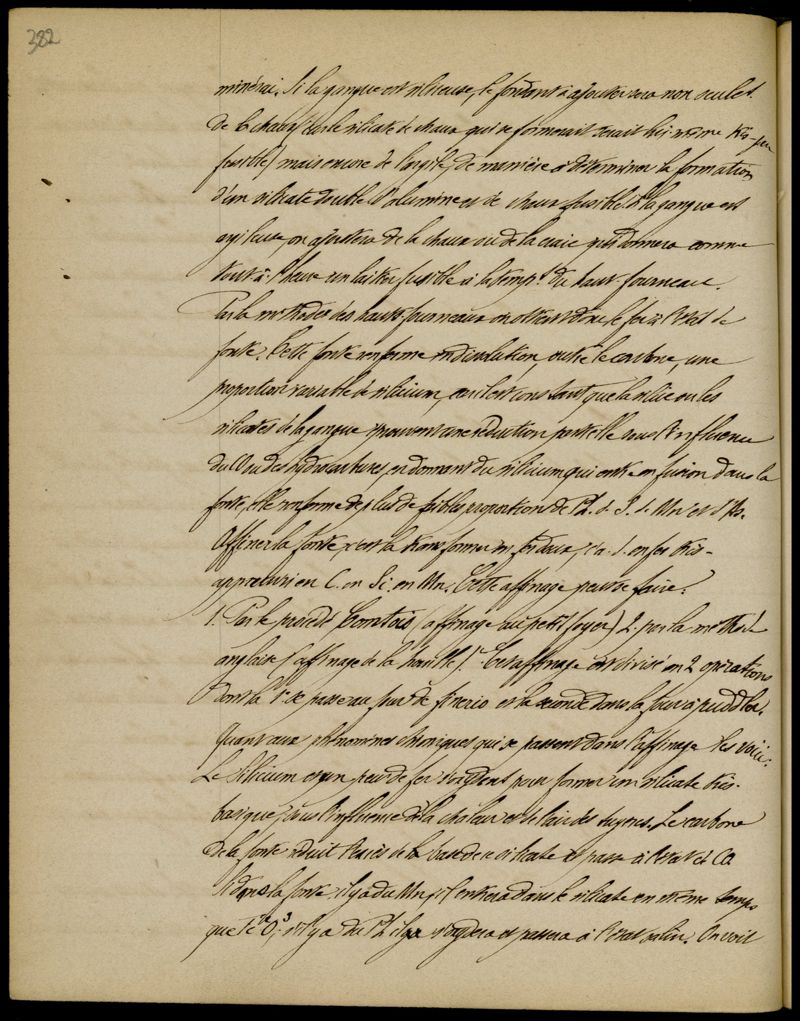 382
minérai. Si la gangue est siliceuse, le fondant à ajouter sera non seulet
de la chaux (car le silicate de chaux qui se formerait serait lui-même très-peu
fusible) mais encore de l'argile, de manière à déterminer la formation
d'un silicate double d'alumine et de chaux fusible. Si la gangue est
argileuse, on ajoutera de la chaux ou de la craie qui donnera comme
tout à l'heure un laitier fusible à la tempre du haut fourneau.
Par la méthode des hauts-fourneaux on obtient donc le fer à l'état de
fonte. Cette fonte renferme en dissolution, outre le carbone, une
proportion variable de silicium, car il est constant que la silice ou les
silicates de la gangue éprouvent une réduction partielle sous l'influence
du CO ou des hydrocarbures, en donnant du silicium qui entre en fusion dans la
fonte, elle renferme de plus de faibles proportions de Ph. de S. de Mn et d'As.
Affiner la fonte, c'est la transformer en fer doux, c.à.d. en fer très-
appauvri en C. en Si. en Mn. Cette affinage peut se faire:
1. Par le procédé Comtois (affinage au petit foyer) 2. par la méthode
anglaise (affinage de la houille). Cet affinage est divisé en 2 opérations
dont la 1re se passe au four de finerie et la seconde dans le four à puddler.
Quant aux phénomènes chimiques qui se passent dans l'affinage les voici:
Le silicium et un peu de fer s'oxydent pour former un silicate très-
basique, sous l'influence de la chaleur et de l'air des tuyères. Le carbone
de la fonte réduit l'excès de la base de ce silicate et passe à l'état de CO
Si dans la fonte il y a du Mn, il entrera dans le silicate en même temps
que le O3, s'il y a du Ph. il s'oxydera et passera à l'état salin. On voit